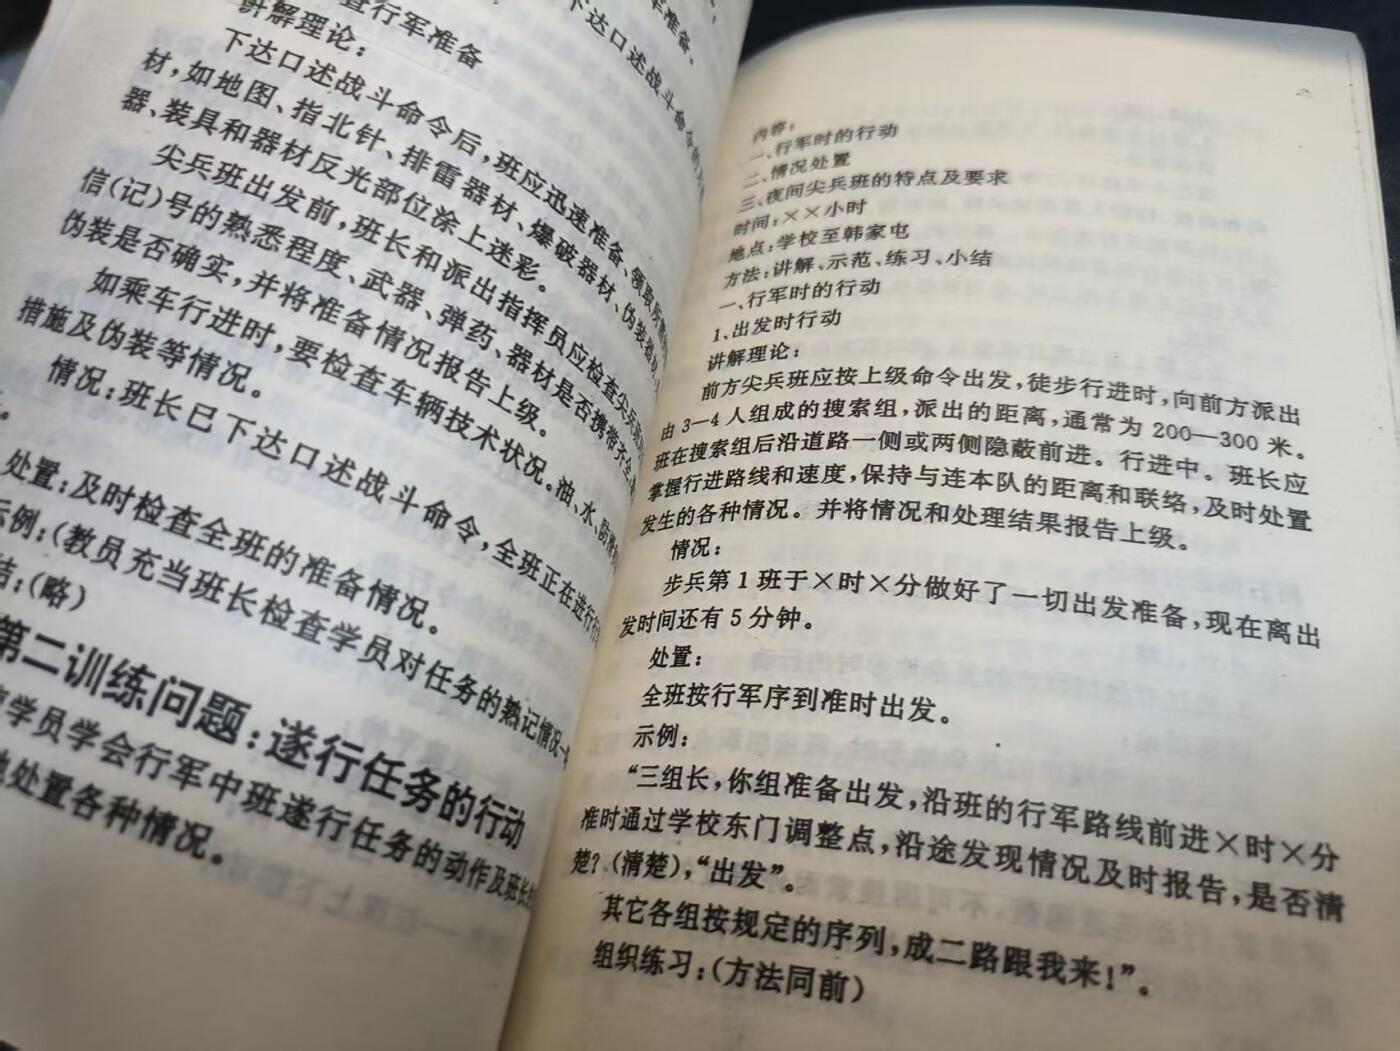 查行军准备
讲解理论：
下达口述战斗命令后，班应迅速准备、领取所需
材，如地图、指北针、排雷器材、爆破器材、伪装器材
器、装具和器材反光部位涂上迷彩。
尖兵班出发前，班长和派出指挥员应检查尖兵班
信(记)号的熟悉程度、武器、弹药、器材是否携带齐全
伪装是否确实，并将准备情况报告上级。
如乘车行进时，要检查车辆技术状况。油、水、防滑
措施及伪装等情况。
情况：班长已下达口述战斗命令，全班正在进行行
处置：及时检查全班的准备情况。
示例：(教员充当班长检查学员对任务的熟记情况
结：(略)
第二训练问题：遂行任务的行动
学员学会行军中班遂行任务的动作及班长
处置各种情况。
军准备。
下达口述战斗命令的
内容：
一、行军时的行动
二、情况处置
三、夜间尖兵班的特点及要求
时间：××小时
地点：学校至韩家屯
方法：讲解、示范、练习、小结
一、行军时的行动
1、出发时行动
讲解理论：
前方尖兵班应按上级命令出发，徒步行进时，向前方派出
由 3—4 人组成的搜索组，派出的距离，通常为 200—300 米。
班在搜索组后沿道路一侧或两侧隐蔽前进。行进中。班长应
掌握行进路线和速度，保持与连本队的距离和联络，及时处置
发生的各种情况。并将情况和处理结果报告上级。
情况：
步兵第 1 班于×时×分做好了一切出发准备，现在离出
发时间还有 5 分钟。
处置：
全班按行军序到准时出发。
示例：
“三组长，你组准备出发，沿班的行军路线前进×时×分
准时通过学校东门调整点，沿途发现情况及时报告，是否清
楚？(清楚)，“出发”。
其它各组按规定的序列，成二路跟我来！”。
组织练习：(方法同前)